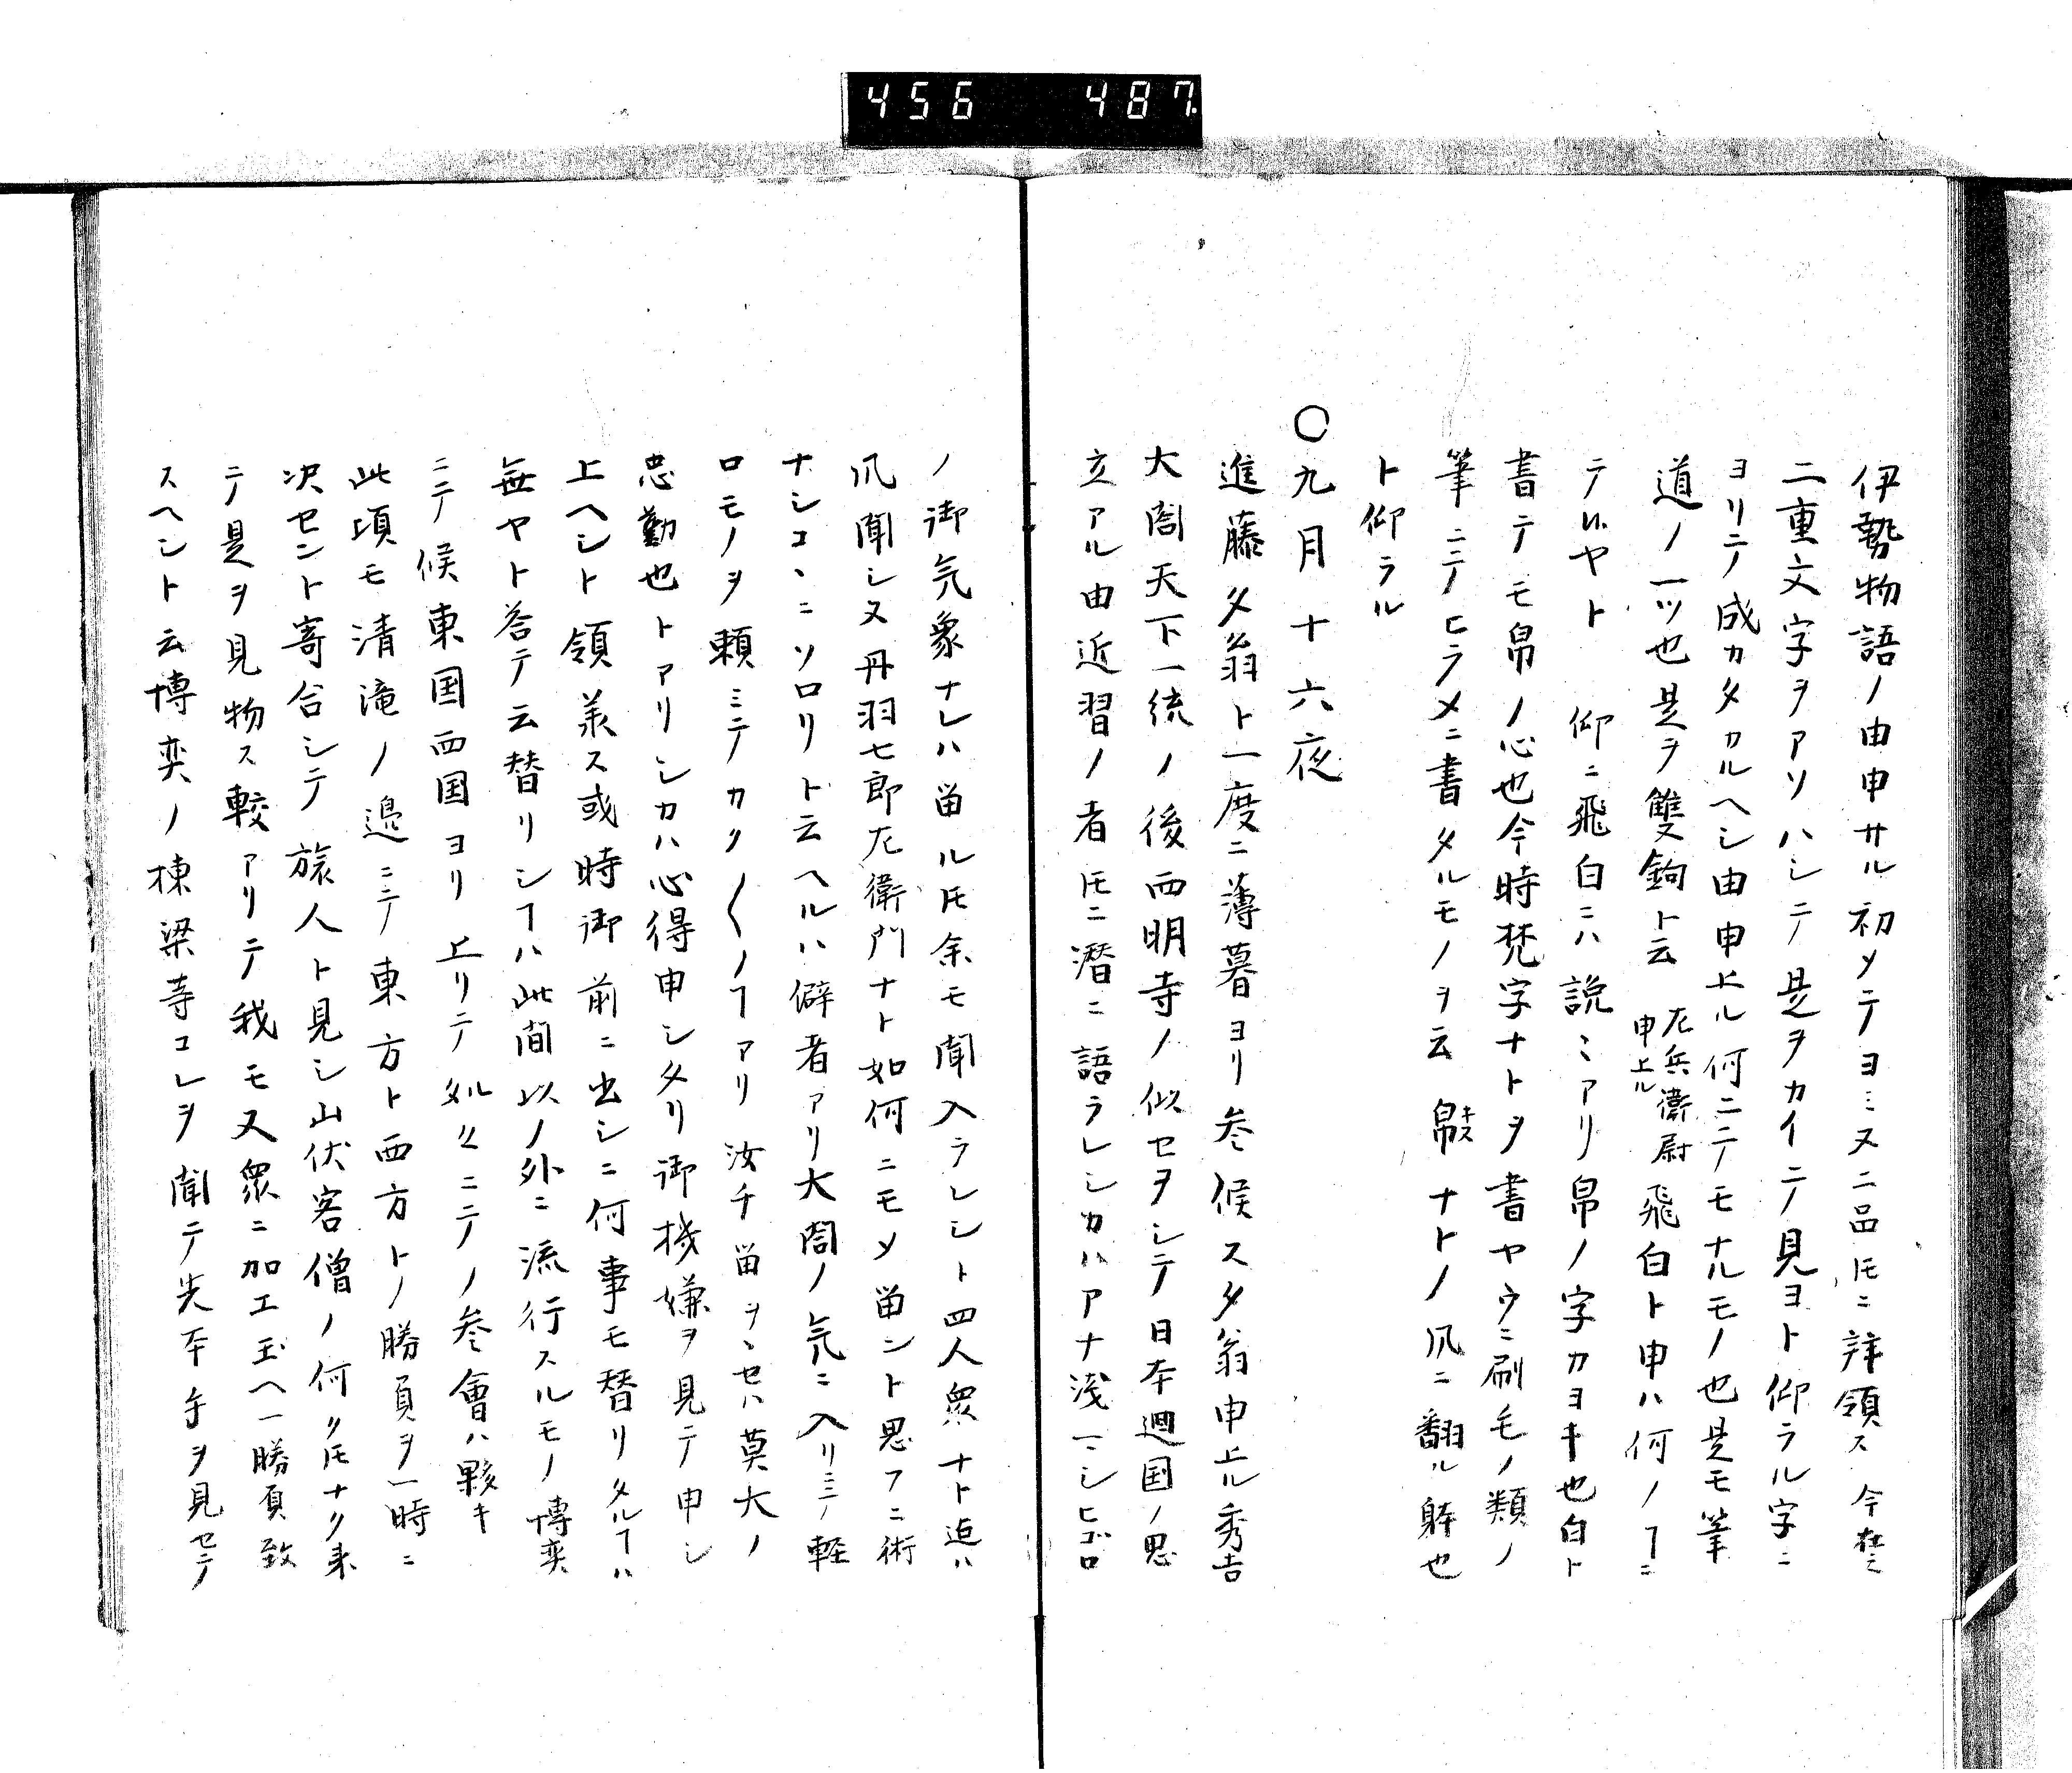 456 487
伊勢物語ノ由申サル初メテヨミヌ二品ヒニ拝領ス今
二重文字ヲアソハシテ是ヲカイテ見ヨト仰ラル字ニ
ヨリテ成カタカルヘシ由申上ル何ニテモナルモノ也是モ筆
道ノ一ツ也是ヲ雙鉤ト云 左兵衛尉申上ル 飛白ト申ハ何ノヿニ
テ候ヤト 仰ニ飛白ニハ説〻アリ帛ノ字カヨキ也白ト
書テモ帛ノ心也今時梵字ナトヲ書ヤウニ刷毛ノ類ノ
筆ニテヒラメニ書タルモノヲ云帛キヌナトノ風ニ翻ル躰也
ト仰ラル
〇九月十六夜
進藤夕翁ト一度ニ薄暮ヨリ参候ス夕翁申上ル秀吉
大閤天下一統ノ後西明寺ノ似セヲシテ日本廻国ノ思
立アル由近習ノ者𪜈ニ潜ニ語ラレシカハアナ浅〻シヒゴロ
ノ御気象ナレハ畄ル𪜈余モ聞入ラレシト四人衆ナト迄ハ
風聞シ又丹羽七郎左衛門ナト如何ニモメ畄ント思フニ術
ナシコヽニソロリト云ヘルハ僻者アリ大閤ノ気ニ入リミテ軽
ロモノヲ頼ミテカク〱ノヿアリ汝チ畄ヲヽセハ莫大ノ
忠勤也トアリシカハ心得申シタリ御機嫌ヲ見テ申シ
上ヘシト領美ス或時御前ニ出シニ何事モ替リタルヿハ
無ヤト答テ云替リシヿハ此間以ノ外ニ流行スルモノ博奕
ニテ候東国西国ヨリ上リテタルクニテノ参會ハ夥キ
此頃モ清滝ノ邉ニテ東方ト西方トノ勝負ヲ一時ニ
决セント寄合シテ旅人ト見シ山伏客僧ノ何ク𪜈ナク来
テ是ヲ見物ス較アリテ我モ又衆ニ加エ玉ヘ一勝負致
スヘシト云博奕ノ棟梁寺コレヲ聞テ先本手ヲ見セテ